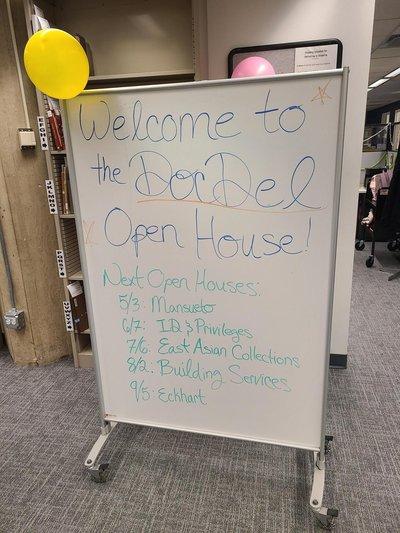 Welcome to
the DocDel
Open House!
Next Open Houses:
5/3: Mansueto
6/7: ID & Privileges
7/6: East Asian Collections
8/2: Building Services
9/5: Eckhart